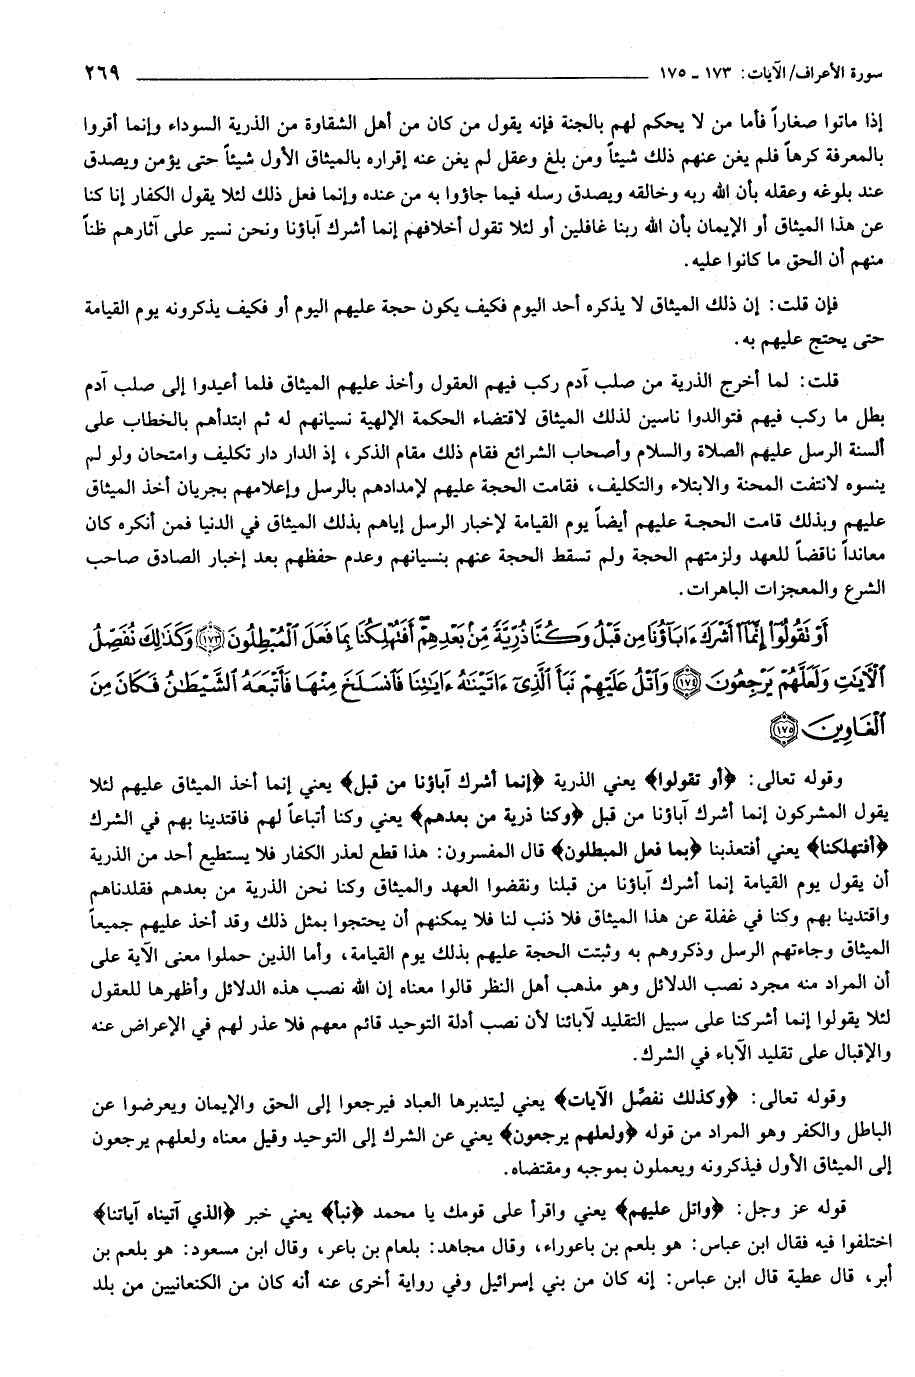 سورة الأعراف/الآيات: ١٧٣ - ١٧٥ ٢٦٩
إذا ماتوا صغاراً فأما من لا يحكم لهم بالجنة فإنه يقول من كان من أهل الشقاوة من الذرية السوداء وإنما أقروا
بالمعرفة كرهاً فلم يغن عنهم ذلك شيئاً ومن بلغ وعقل لم يغن عنه إقراره بالميثاق الأول شيئاً حتى يؤمن ويصدق
عند بلوغه وعقله بأن الله ربه وخالقه ويصدق رسله فيما جاؤوا به من عنده وإنما فعل ذلك لئلا يقول الكفار إنا كنا
عن هذا الميثاق أو الإيمان بأن الله ربنا غافلين أو لئلا تقول أخلافهم إنما أشرك آباؤنا ونحن نسير على آثارهم ظناً
منهم أن الحق ما كانوا عليه.
فإن قلت: إن ذلك الميثاق لا يذكره أحد اليوم فكيف يكون حجة عليهم اليوم أو فكيف يذكرونه يوم القيامة
حتى يحتج عليهم به.
قلت: لما أخرج الذرية من صلب آدم ركب فيهم العقول وأخذ عليهم الميثاق فلما أعيدوا إلى صلب آدم
بطل ما ركب فيهم فتوالدوا ناسين لذلك الميثاق لاقتضاء الحكمة الإلهية نسيانهم له ثم ابتدأهم بالخطاب على
ألسنة الرسل عليهم الصلاة والسلام وأصحاب الشرائع فقام ذلك مقام الذكر، إذ الدار دار تكليف وامتحان ولو لم
ينسوه لانتفت المحنة والابتلاء والتكليف، فقامت الحجة عليهم لإمدادهم بالرسل وإعلامهم بجريان أخذ الميثاق
عليهم وبذلك قامت الحجة عليهم أيضاً يوم القيامة لإخبار الرسل إياهم بذلك الميثاق في الدنيا فمن أنكره كان
معانداً ناقضاً للعهد ولزمتهم الحجة ولم تسقط الحجة عنهم بنسيانهم وعدم حفظهم بعد إخبار الصادق صاحب
الشرع والمعجزات الباهرات.
أَوْ نَقُولُوٓا۟ إِنَّمَآ أَشْرَكَ ءَابَآؤُنَا مِن قَبْلُ وَكُنَّا ذُرِّيَّةً مِّنۢ بَعْدِهِمْ أَفَتُهْلِكُنَا بِمَا فَعَلَ ٱلْمُبْطِلُونَ ﴿١٧٣﴾ وَكَذَٰلِكَ نُفَصِّلُ
ٱلْءَايَٰتِ وَلَعَلَّهُمْ يَرْجِعُونَ ﴿١٧٤﴾ وَٱتْلُ عَلَيْهِمْ نَبَأَ ٱلَّذِىٓ ءَاتَيْنَٰهُ ءَايَٰتِنَا فَٱنسَلَخَ مِنْهَا فَأَتْبَعَهُ ٱلشَّيْطَٰنُ فَكَانَ مِنَ
ٱلْغَاوِينَ ﴿١٧٥﴾
وقوله تعالى: ﴿أو تقولوا﴾ يعني الذرية ﴿إنما أشرك آباؤنا من قبل﴾ يعني إنما أخذ الميثاق عليهم لئلا
يقول المشركون إنما أشرك آباؤنا من قبل ﴿وكنا ذرية من بعدهم﴾ يعني وكنا أتباعاً لهم فاقتدينا بهم في الشرك
﴿أفتهلكنا﴾ يعني أفتعذبنا ﴿بما فعل المبطلون﴾ قال المفسرون: هذا قطع لعذر الكفار فلا يستطيع أحد من الذرية
أن يقول يوم القيامة إنما أشرك آباؤنا من قبلنا ونقضوا العهد والميثاق وكنا نحن الذرية من بعدهم فقلدناهم
واقتدينا بهم وكنا في غفلة عن هذا الميثاق فلا ذنب لنا فلا يمكنهم أن يحتجوا بمثل ذلك وقد أخذ عليهم جميعاً
الميثاق وجاءتهم الرسل وذكروهم به وثبتت الحجة عليهم بذلك يوم القيامة، وأما الذين حملوا معنى الآية على
أن المراد منه مجرد نصب الدلائل وهو مذهب أهل النظر قالوا معناه إن الله نصب هذه الدلائل وأظهرها للعقول
لئلا يقولوا إنما أشركنا على سبيل التقليد لآبائنا لأن نصب أدلة التوحيد قائم معهم فلا عذر لهم في الإعراض عنه
والإقبال على تقليد الآباء في الشرك.
وقوله تعالى: ﴿وكذلك نفصّل الآيات﴾ يعني ليتدبرها العباد فيرجعوا إلى الحق والإيمان ويعرضوا عن
الباطل والكفر وهو المراد من قوله ﴿ولعلهم يرجعون﴾ يعني عن الشرك إلى التوحيد وقيل معناه ولعلهم يرجعون
إلى الميثاق الأول فيذكرونه ويعملون بموجبه ومقتضاه.
قوله عز وجل: ﴿واتل عليهم﴾ يعني واقرأ على قومك يا محمد ﴿نبأ﴾ يعني خبر ﴿الذي آتيناه آياتنا﴾
اختلفوا فيه فقال ابن عباس: هو بلعم بن باعوراء، وقال مجاهد: بلعام بن باعر، وقال ابن مسعود: هو بلعم بن
أبر، قال عطية قال ابن عباس: إنه كان من بني إسرائيل وفي رواية أخرى عنه أنه كان من الكنعانيين من بلد